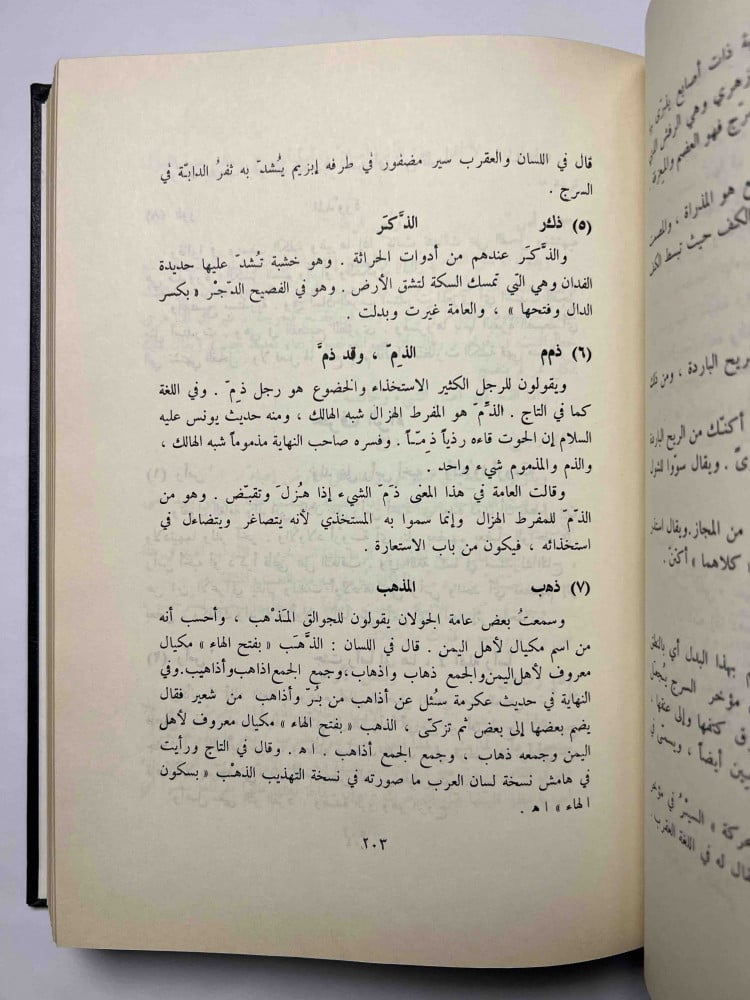 قال في اللسان والعقرب سير مضفور في طرفه إبزيم يُشدّ به ثفرُ الدابّة في
السرج .
(٥) ذكر الذَّكَر
والذَّكَر عندهم من أدوات الحراثة . وهو خشبة تُشدّ عليها حديدة
الفدان وهي التي تمسك السكة لتشق الأرض . وهو في الفصيح الدّجْر « بكسر
الدال وفتحها » ، والعامة غيرت وبدلت .
(٦) ذمم الذِمّ ، وقد ذمَّ
ويقولون للرجل الكثير الاستخذاء والخضوع هو رجل ذِمّ . وفي اللغة
كما في التاج . الذَّمّ هو المفرط الهزال شبه الهالك ، ومنه حديث يونس عليه
السلام إن الحوت قاءه رذياً ذمّاً . وفسره صاحب النهاية مذموماً شبه الهالك ،
والذم والمذموم شيء واحد .
وقالت العامة في هذا المعنى ذَمّ الشيء إذا هُزلَ وتقبّض . وهو من
الذّمّ للمفرط الهزال وإنما سموا به المستخذي لأنه يتصاغر ويتضاءل في
استخذائه ، فيكون من باب الاستعارة .
(٧) ذهب المذهب
وسمعتُ بعض عامة الجولان يقولون للجوالق المَذْهب ، وأحسب أنه
من اسم مكيال لأهل اليمن . قال في اللسان : الذَّهَب « بفتح الهاء » مكيال
معروف لأهل اليمن والجمع ذهاب واذهاب، وجمع الجمع اذاهب وأذاهيب. وفي
النهاية في حديث عكرمة سُئل عن أذاهب من بُرّ وأذاهب من شعير فقال
يضم بعضها إلى بعض ثم تزكّى ، الذهب « بفتح الهاء » مكيال معروف لأهل
اليمن وجمعه ذهاب ، وجمع الجمع أذاهب . اه . وقال في التاج ورأيت
في هامش نسخة لسان العرب ما صورته في نسخة التهذيب الذهْب « بسكون
الهاء » اه .
٢٠٣
ذات أصابع
وهي الرفش
فهو العضم
هو المذراة ،
الكف حيث تبسط الكف
الريح الباردة ، ومن ذلك
أكنّك من الريح الباردة
. ويقال
من المجاز. ويقال
« كلاهما » أكننّ .
بهذا البدل أي
مؤخر السرج
كتفها وإلى عنقها
أيضاً ،
« السيْرُ في
له في اللغة العقرب .